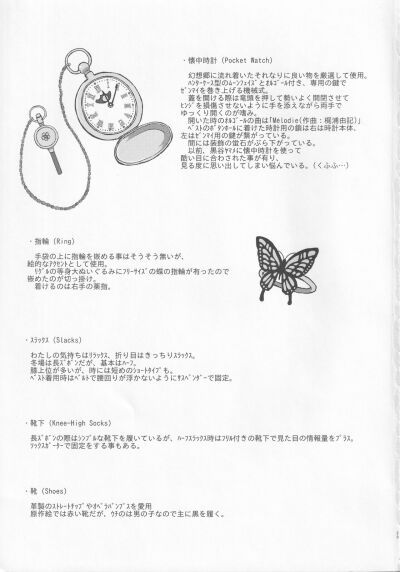 ・懐中時計 (Pocket Watch)
幻想郷に流れ着いたそれなりに良い物を厳選して使用。
ハンターケース型のムーンフェイズとオルゴール付き、専用の鍵で
ゼンマイを巻き上げる機械式。
蓋を開ける際は竜頭を押して勢いよく開閉させて
ヒンジを損傷させないように手を添えながら両手で
ゆっくり開くのが嗜み。
開いた時のオルゴールの曲は「Melodie(作曲:梶浦由記)」
ベストのボタンホールに着けた時計用の鎖は右は時計本体、
左はゼンマイ用の鍵が繋がっている。
間には装飾の蛍石がぶら下がっている。
以前、黒谷ヤマメに懐中時計を使って
酷い目に合わされた事が有り、
見る度に思い出してしまい悩んでいる。(くふふ…)
・指輪 (Ring)
手袋の上に指輪を嵌める事はそうそう無いが、
絵的なアクセントとして使用。
リグルの等身大ぬいぐるみにフリーサイズの蝶の指輪が有ったので
嵌めたのが切っ掛け。
着けるのは右手の薬指。
・スラックス (Slacks)
わたしの気持ちはリラックス、折り目はきっちりスラックス。
冬場は長ズボンだが、基本はハーフ。
膝上位が多いが、時には短めのショートタイプも。
ベスト着用時はベルトで腰回りが浮かないようにサスペンダーで固定。
・靴下 (Knee-High Socks)
長ズボンの際はシンプルな靴下を履いているが、ハーフスラックス時はフリル付きの靴下で見た目の情報量をプラス。
ソックスガーターで固定をする事もある。
・靴 (Shoes)
革製のストレートチップやオペラパンプスを愛用
原作絵では赤い靴だが、ウチのは男の子なので主に黒を履く。